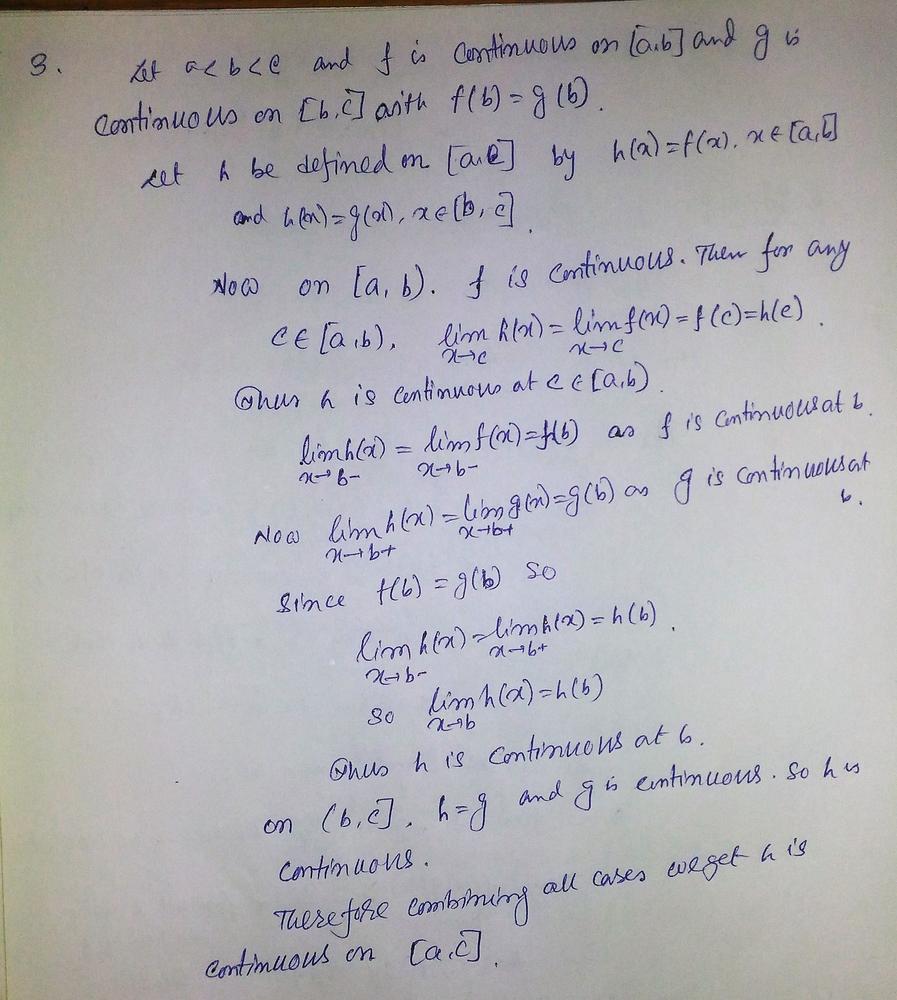 3. Let a<b<c and f is continuous on [a,b] and g is
continuous on [b,c] with f(b) = g(b).
Let h be defined on [a,c] by h(x)=f(x), x∈[a,b]
and h(x)=g(x), x∈[b,c].
Now on [a,b). f is continuous. Then for any
c∈[a,b), lim h(x) = lim f(x) = f(c)=h(c).
x→c x→c
Thus h is continuous at c∈[a,b).
lim h(x) = lim f(x)=f(b) as f is continuous at b.
x→b- x→b-
Now lim h(x) = lim g(x)=g(b) as g is continuous at
x→b+ x→b+ b.
Since f(b) = g(b) so
lim h(x) = lim h(x) = h(b).
x→b- x→b+
so lim h(x)=h(b)
x→b
Thus h is continuous at b.
on (b,c], h=g and g is continuous. So h is
continuous.
Therefore combining all cases we get h is
continuous on [a,c].